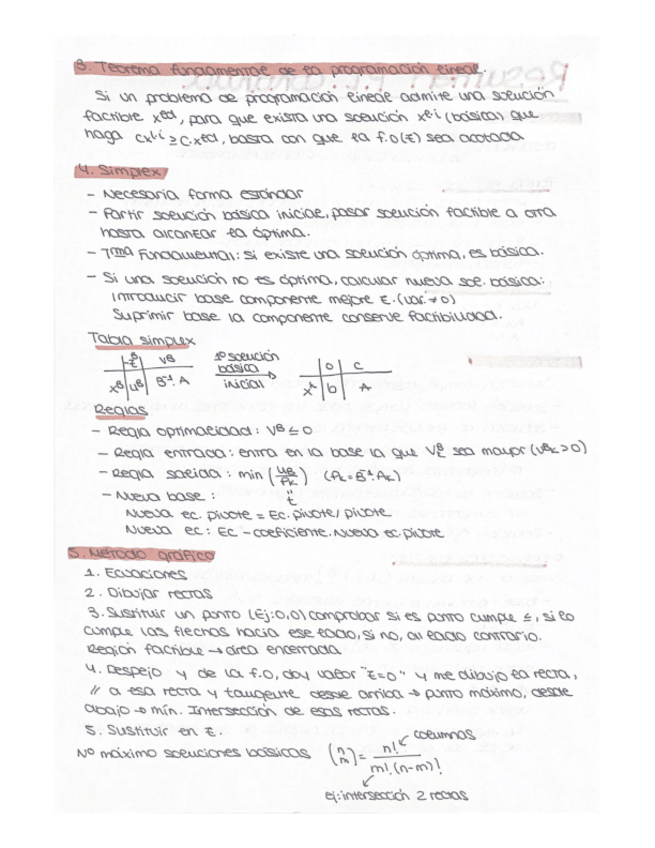 3. Teorema fundamental de la programación lineal.
Si un problema de programación lineal admite una solución
factible x^ed, para que exista una solución x^e.i (básica) que
haga cx^l.i ≥ c.x^ed, basta con que la f.o(z) sea acotada
4. Simplex
- Necesaria forma estándar
- Partir solución básica inicial, pasar solución factible a otra
hasta alcanzar la óptima.
- Tma Fundamental: si existe una solución óptima, es básica.
- Si una solución no es óptima, calcular nueva sol. básica:
Introducir base componente mejore z. (var. ≠ 0)
Suprimir base la componente conserve factibilidad.
Tabla simplex
z^B V^B
x^B u^B B^-1.A
1º solución
básica
inicial
0 c
x^I b A
Reglas
- Regla optimalidad: V^B ≤ 0
- Regla entrada: entra en la base la que V^B_k sea mayor (V^B_k > 0)
- Regla salida: min (u_B / P_k) (P_k = B^-1.A_k)
"
t
- Nueva base:
Nueva ec. pivote = Ec. pivote / pivote
Nueva ec: Ec - coeficiente. Nueva ec. pivote
5. Método gráfico
1. Ecuaciones
2. Dibujar rectas
3. Sustituir un punto (Ej: 0,0) comprobar si es punto cumple ≤, si lo
cumple las flechas hacia ese lado, si no, al lado contrario.
Región factible → área encerrada
4. Despejo y de la f.o, doy valor "z=0" y me dibujo la recta,
// a esa recta y tangente desde arriba → punto máximo, desde
abajo → mín. Intersección de esas rectas.
5. Sustituir en z.
Nº máximo soluciones básicas (n m) = n! / m!.(n-m)!
columnas
ej: intersección 2 rectas